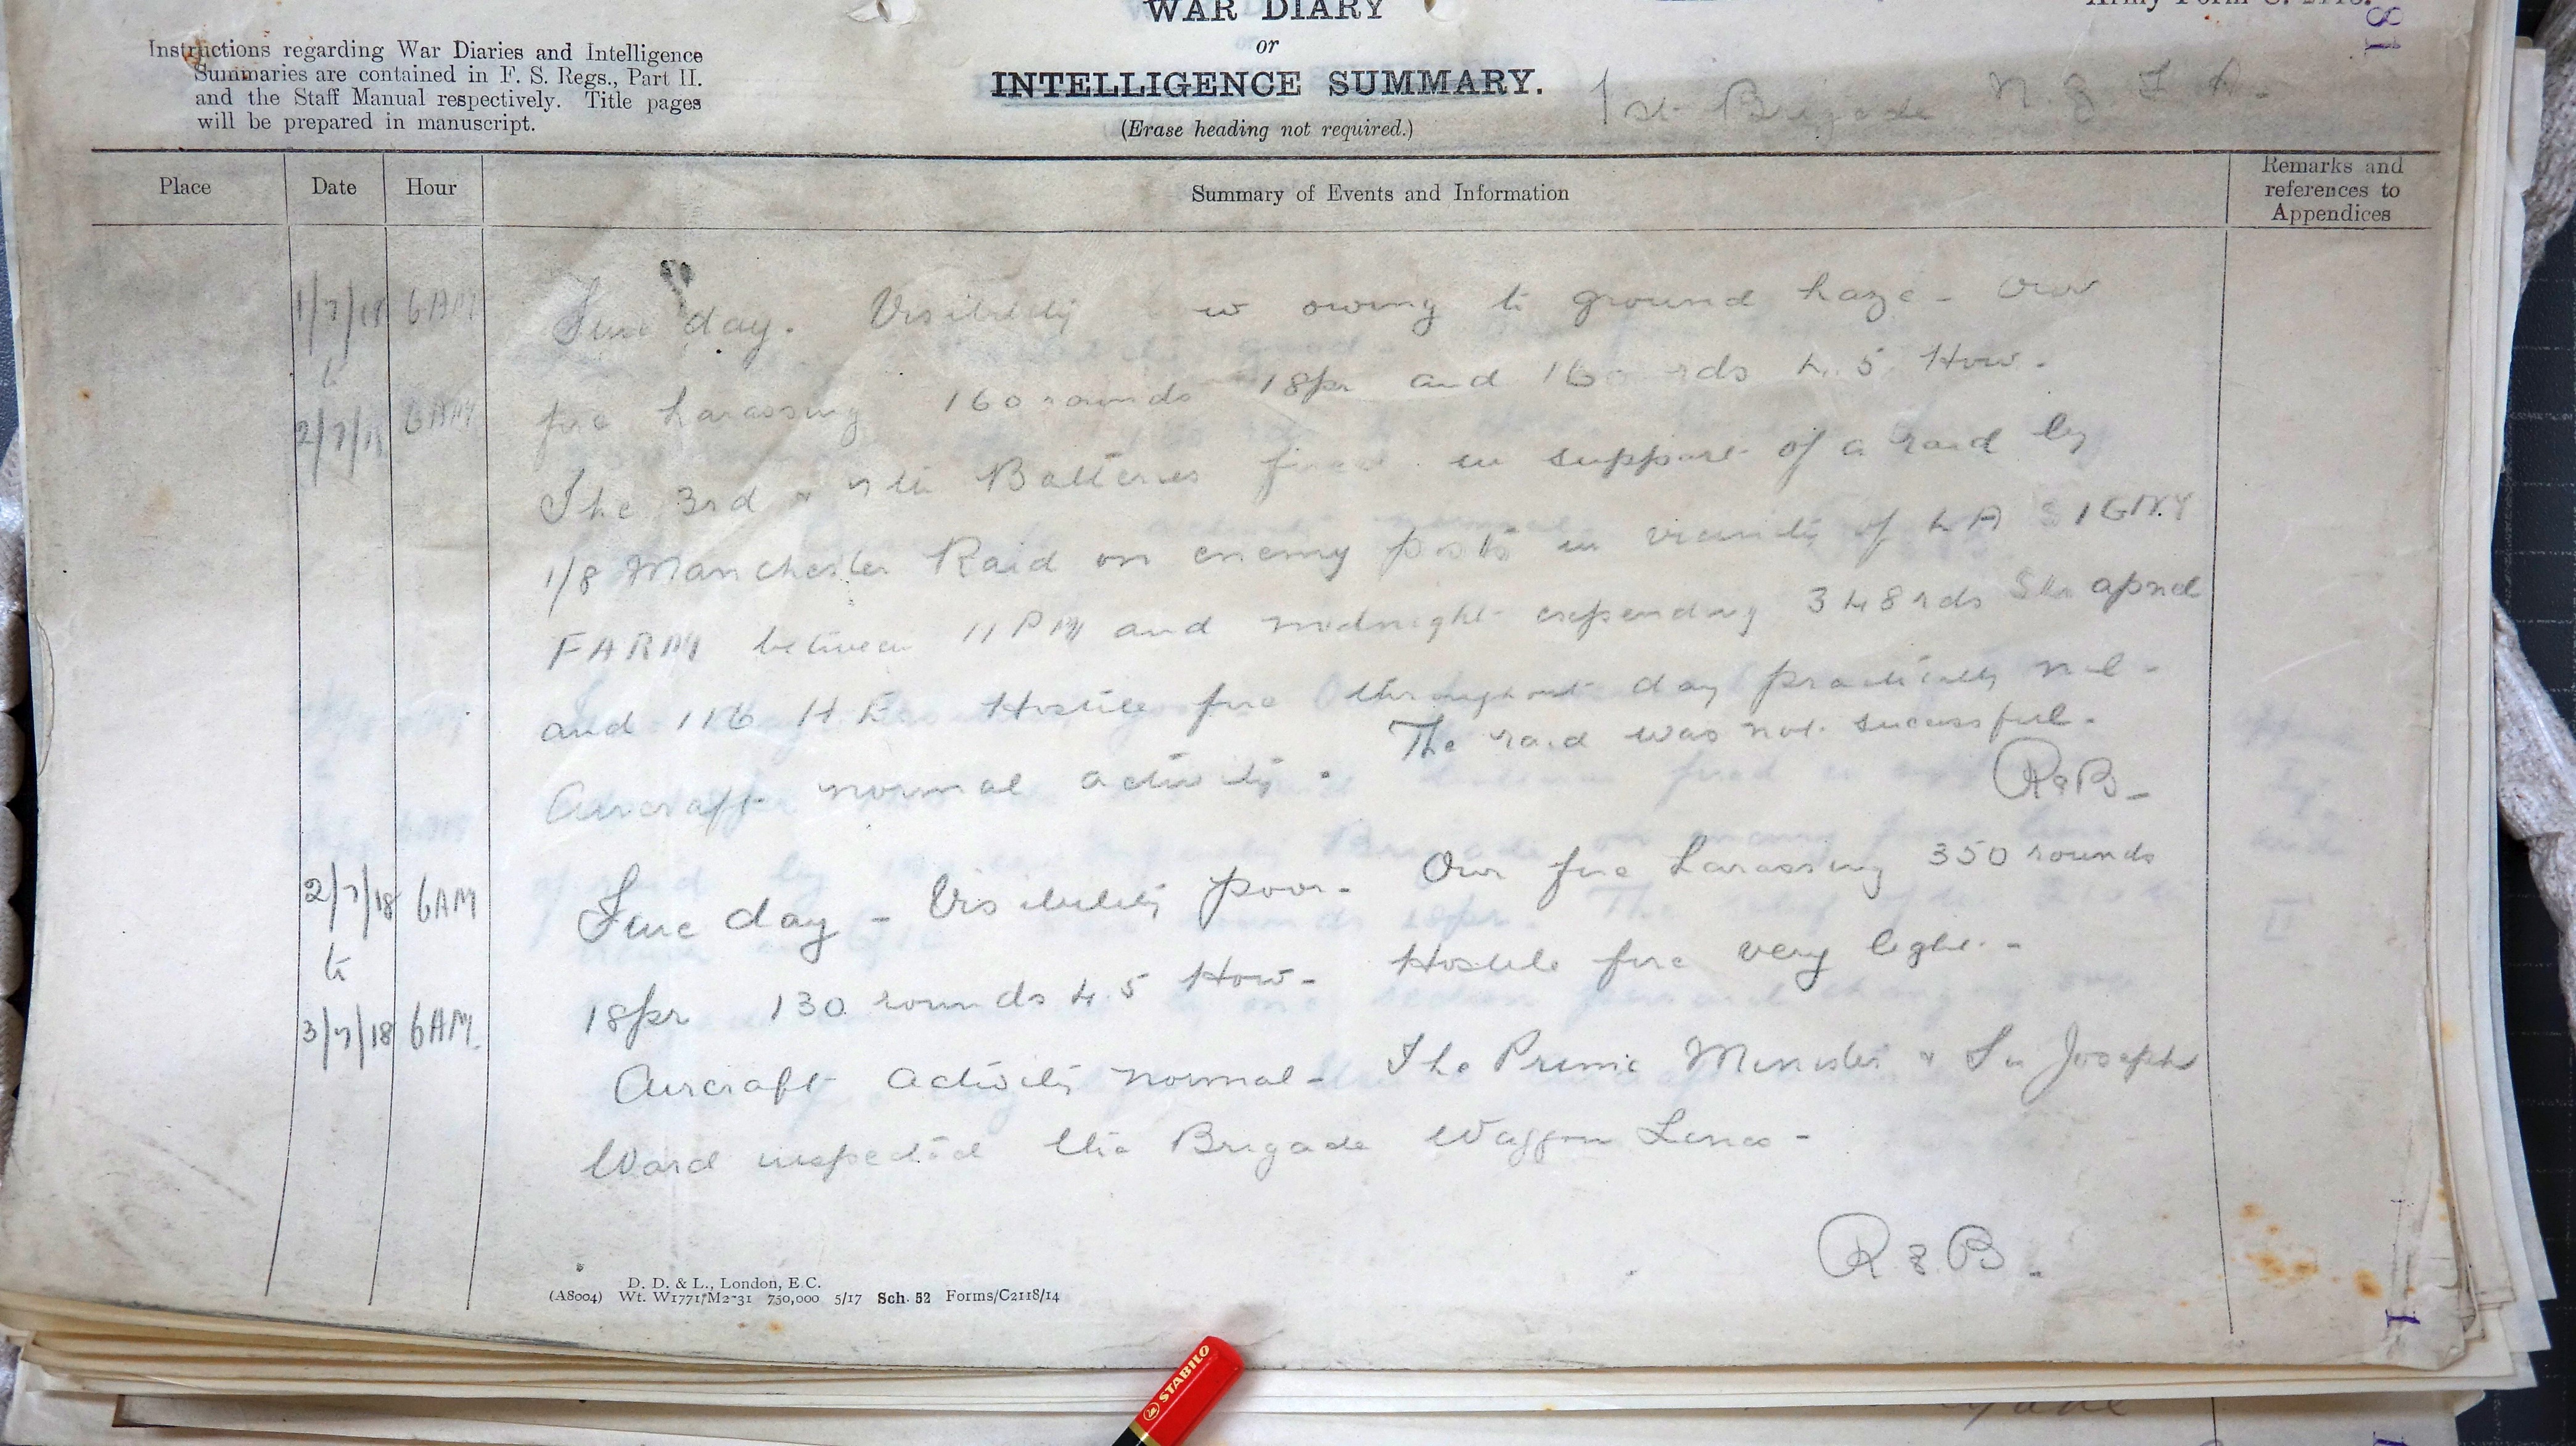 WAR DIARY
or
INTELLIGENCE SUMMARY.
(Erase heading not required.)
Army Form C. 2118.
81
Instructions regarding War Diaries and Intelligence
Summaries are contained in F. S. Regs., Part II.
and the Staff Manual respectively. Title pages
will be prepared in manuscript.
1st Brigade N. Z. F. A.
Place Date Hour Summary of Events and Information
Remarks and
references to
Appendices
1/7/18 6AM Fine day. Visibility low owing to ground haze - Our
to
2/7/18 6AM fire harassing 160 rounds 18pr and 160 rds 4.5 How.
The 3rd & 7th Batteries fired in support of a raid by
1/8 Manchester Raid on enemy posts in vicinity of LA SIGNY
FARM between 11 PM and midnight expending 348 rds Shrapnel
and 116 H.E. Hostile fire throughout day practically nil -
Aircraft normal activity. The raid was not sucessful.
R&B -
2/7/18 6AM Fine day - Visibility poor - Our fire harassing 350 rounds
to
3/7/18 6AM. 18pr 130 rounds 4.5 How - Hostile fire very light. -
Aircraft activity normal - The Prime Minister & Sir Joseph
Ward inspected the Brigade Waggon Lines -
R&B -
D. D. & L., London, E.C.
(A8004) Wt. W1771/M2-31 750,000 5/17 Sch. 52 Forms/C2118/14
STABILO
1